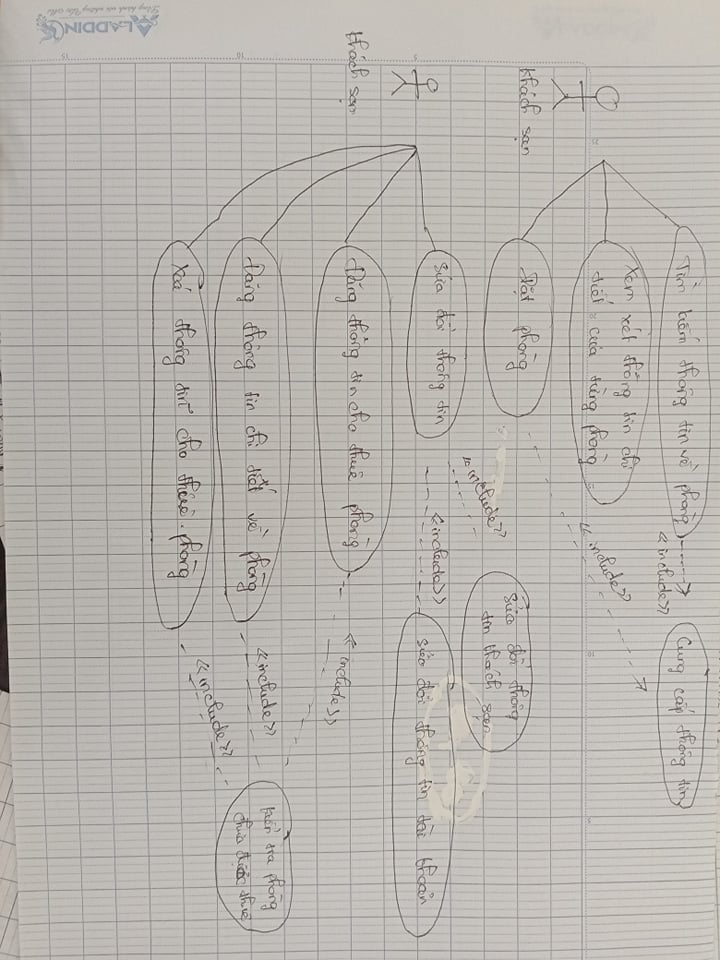 Tìm kiếm thông tin về phòng
<<include>>
Cung cấp thông tin
Xem xét thông tin chi
tiết của từng phòng
<<include>>
khách sạn
Đặt phòng
<<include>>
sửa đổi thông
tin khách sạn
sửa đổi thông tin
<<include>>
sửa đổi thông tin tài khoản
khách sạn
Đăng thông tin cho thuê phòng
<<include>>
Đăng thông tin chi tiết về phòng
<<include>>
kiểm tra phòng
chưa được thuê
Xoá thông tin cho thuê phòng
<<include>>
ALADDIN